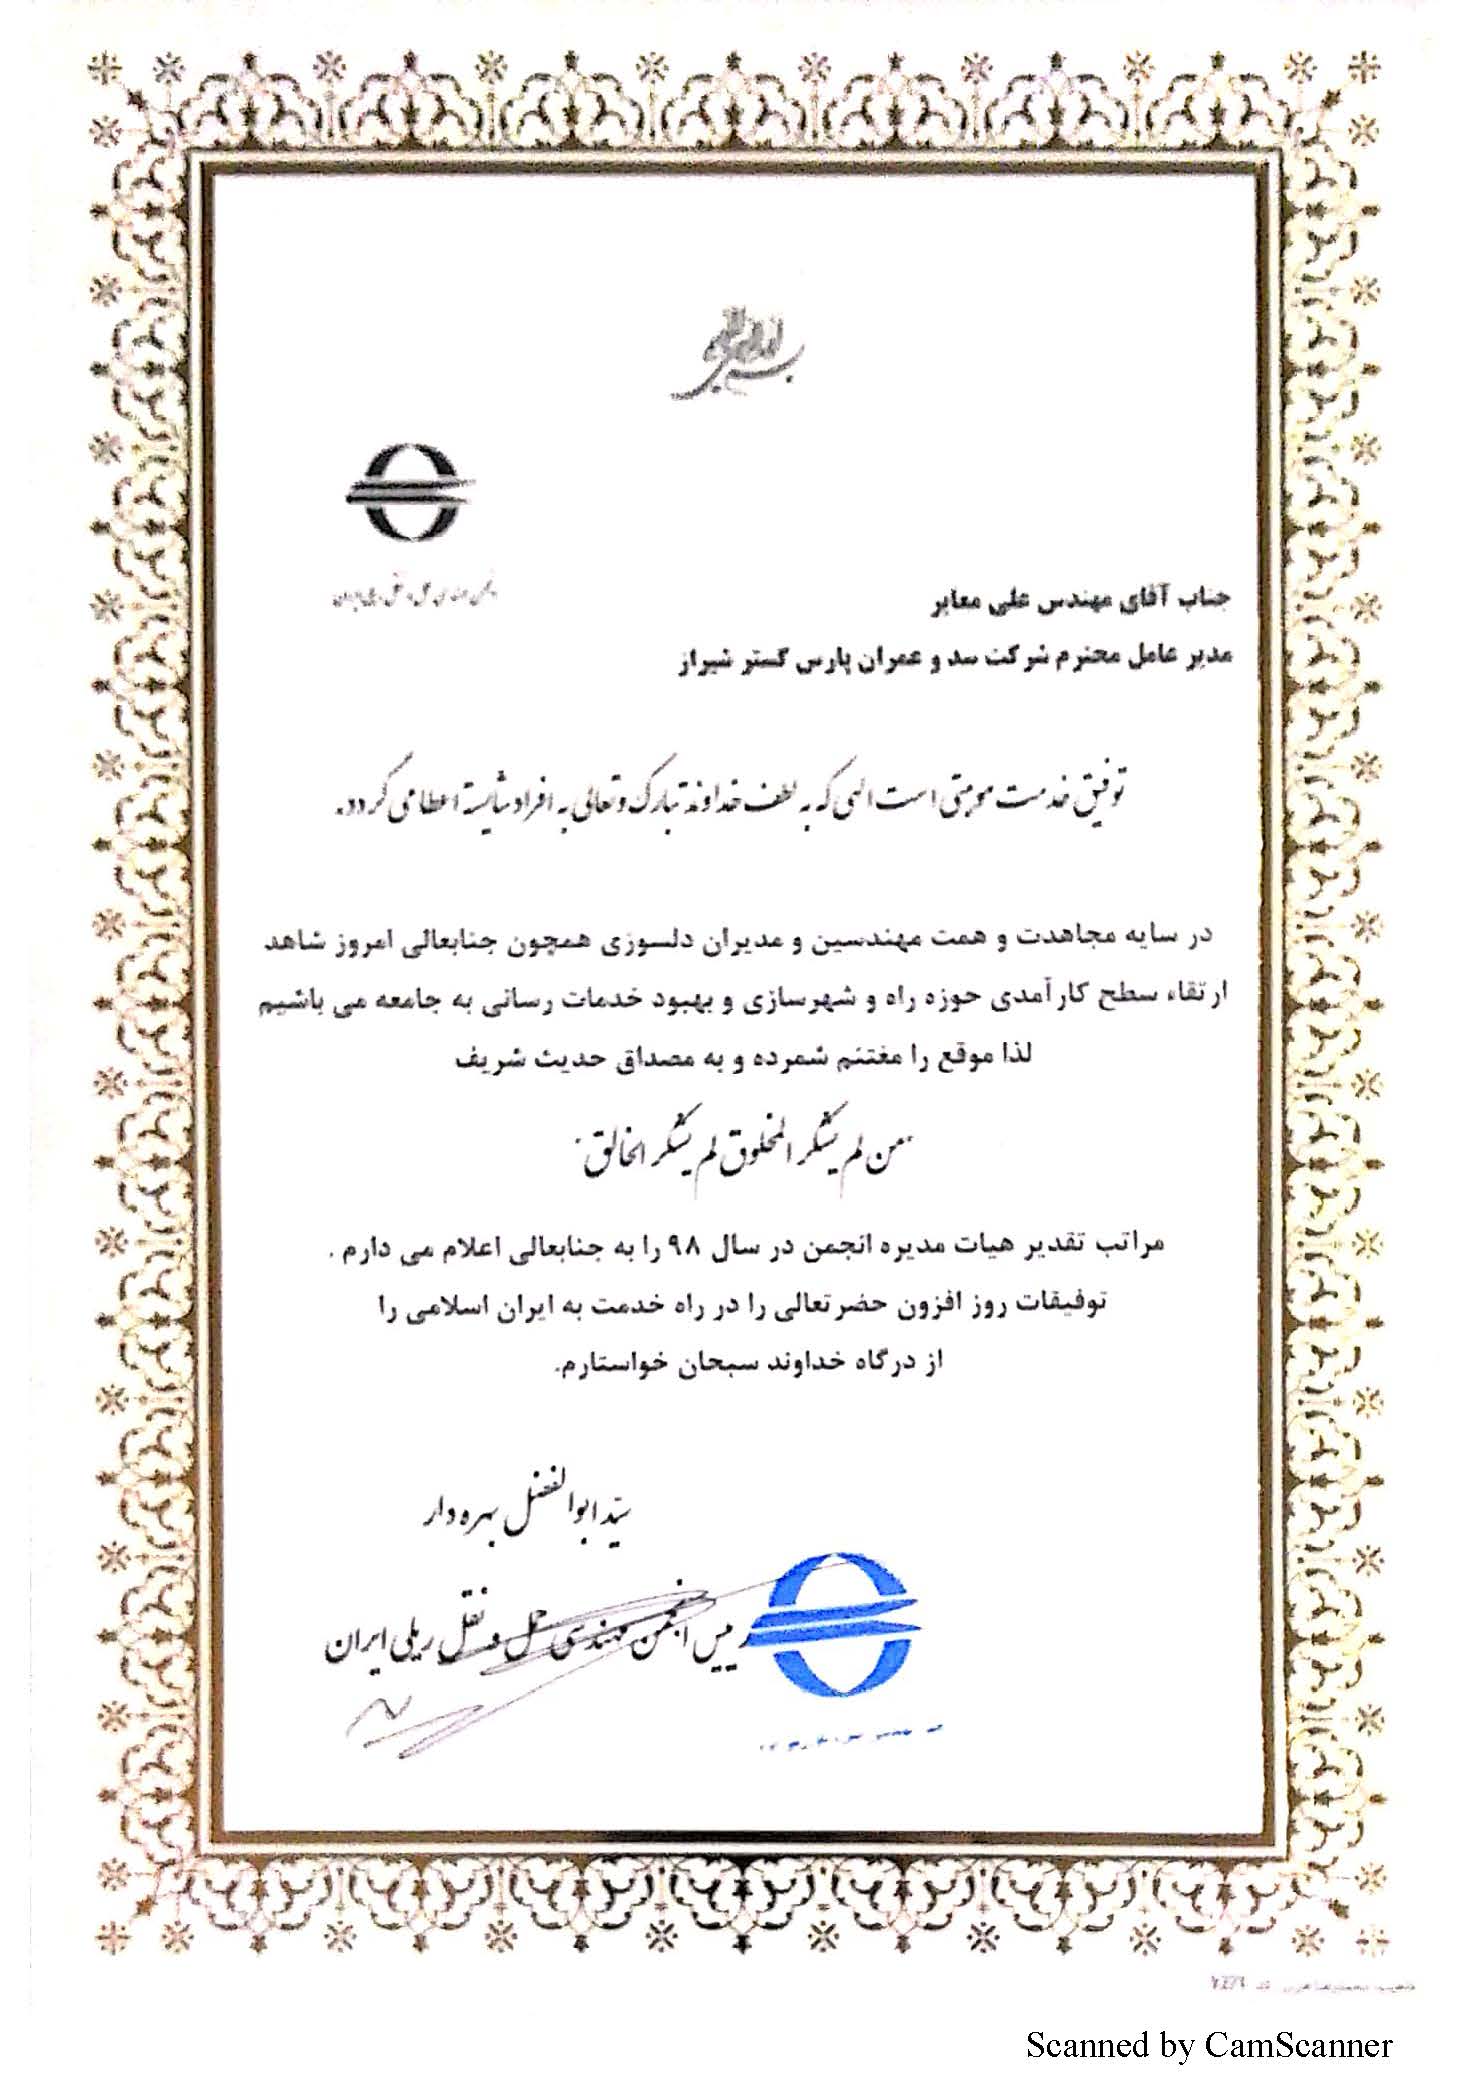 بسم الله الرحمن الرحیم
انجمن مهندسی حمل و نقل ریلی ایران
جناب آقای مهندس علی معابر
مدیر عامل محترم شرکت سد و عمران پارس گستر شیراز
توفیق خدمت موهبتی است الهی که به لطف خداوند تبارک و تعالی به افراد شایسته اعطا می گردد.
در سایه مجاهدت و همت مهندسین و مدیران دلسوزی همچون جنابعالی امروز شاهد
ارتقاء سطح کارآمدی حوزه راه و شهرسازی و بهبود خدمات رسانی به جامعه می باشیم
لذا موقع را مغتنم شمرده و به مصداق حدیث شریف
"من لم یشکر المخلوق لم یشکر الخالق"
مراتب تقدیر هیات مدیره انجمن در سال ۹۸ را به جنابعالی اعلام می دارم .
توفیقات روز افزون حضرتعالی را در راه خدمت به ایران اسلامی را
از درگاه خداوند سبحان خواستارم.
سید ابوالفضل بهره دار
رییس انجمن مهندسی حمل و نقل ریلی ایران
Scanned by CamScanner